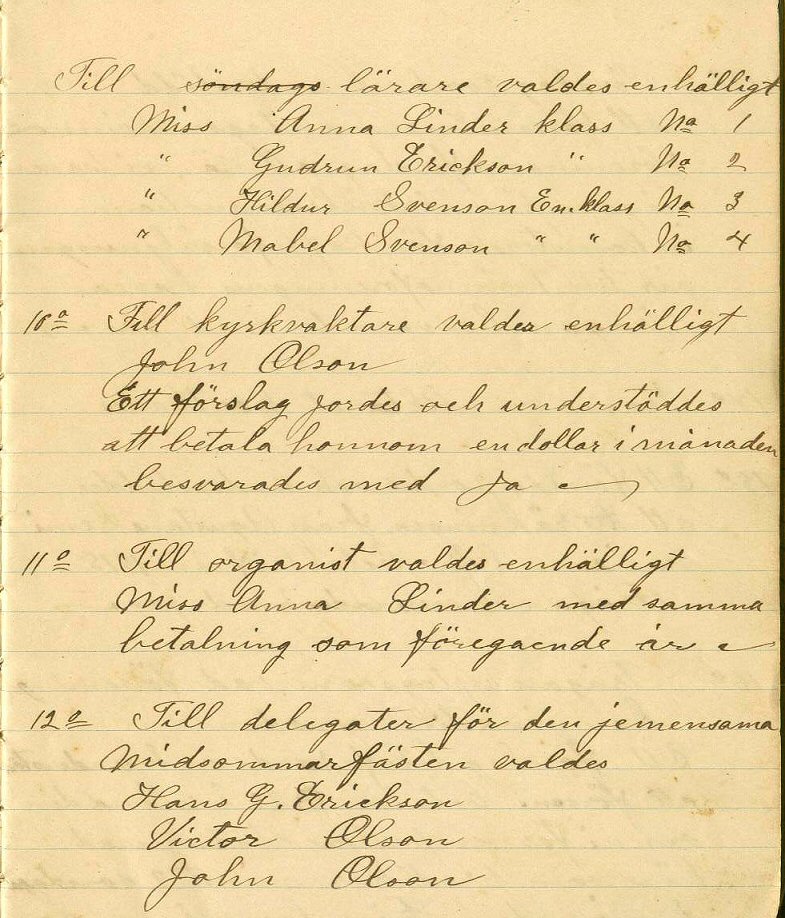 Till söndags lärare valdes enhälligt
Miss Anna Linder klass No 1
" Gudrun Erickson " No 2
" Hildur Svenson En. klass No 3
" Mabel Svenson " " No 4
10o Till kyrkvaktare valdes enhälligt
John Olson
Ett förslag jordes och understöddes
att betala honnom en dollar i månaden
besvarades med ja
11o Till organist valdes enhälligt
Miss Anna Linder med samma
betalning som föregaende år
12o Till delegater för den jemensama
Midsommarfästen valdes
Hans G. Erickson
Victor Olson
John Olson